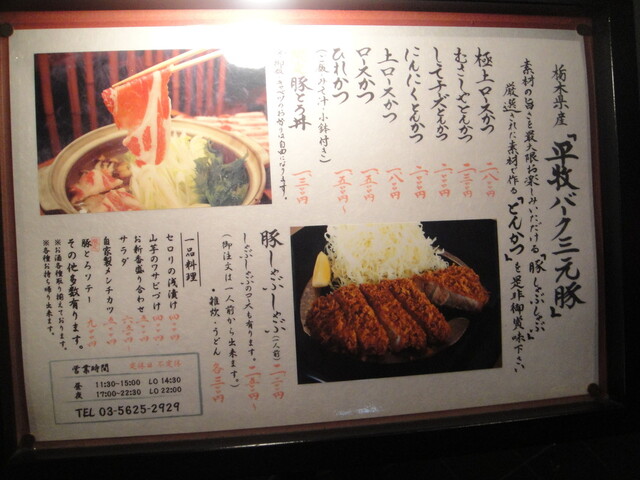 栃木県産「早牧パーク三元豚」
素材の旨さを最大限お楽しみいただける「豚しゃぶしゃぶ」
厳選された素材で作る「とんかつ」を是非御賞味下さい。
極上ロースかつ 二八〇〇円
むさしやとんかつ
してチズとんかつ
にんにくとんかつ
上ロースかつ 一八〇〇円
ロースかつ 一五〇〇円
ひれかつ 一五〇〇円〜
(ご飯・みそ汁・小鉢付き)
豚とろ丼 一三〇〇円
豚しゃぶしゃぶ(一人前)
しゃぶしゃぶのコースも有ります。
(御注文は一人前から出来ます。)
・雑炊・うどん
一品料理
セロリの浅漬け
山芋のワサビづけ
お新香盛り合わせ
サラダ
自家製メンチカツ
豚とろソテー
その他多数有ります。
※お酒各種取り揃えております。
※各種お持ち帰り出来ます。
営業時間 定休日 不定休
昼 11:30~15:00 LO 14:30
夜 17:00~22:30 LO 22:00
TEL 03-5625-2929